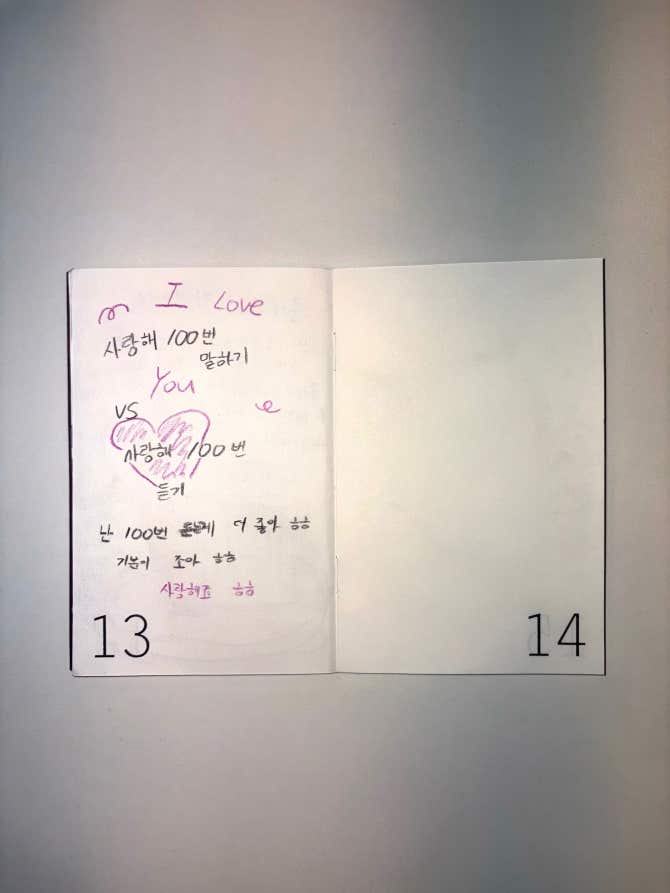 I Love
사랑해 100번
말하기
You
VS
사랑해 100번
듣기
난 100번 더 좋아 ㅎㅎ
기분이 조아 ㅎㅎ
사랑해죠 ㅎㅎ
13
14